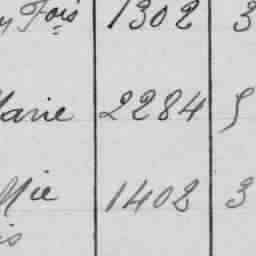 Fois 1302 3
Marie 2284 5
Mie 1402 3
is